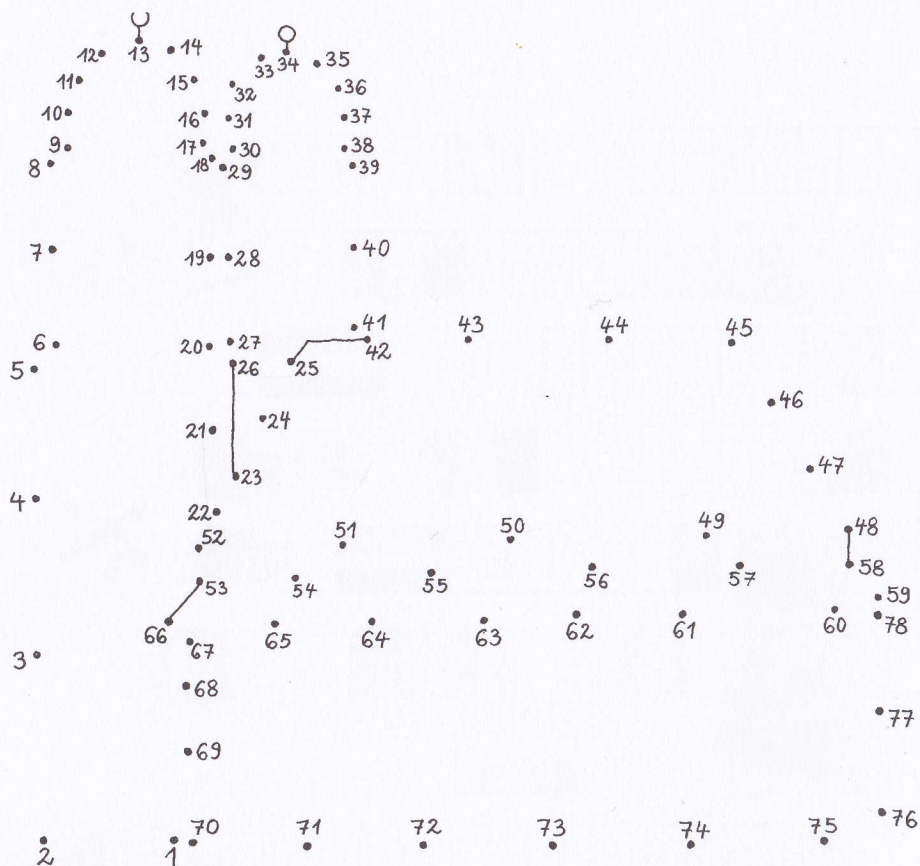 12 13 14 33 34 35
11 15 32 36
10 16 31 37
9 17 30 38
8 18 29 39
7 19 28 40
41
6 20 27 42 43 44 45
5 26 25
46
21 24
23 47
4 22
52 51 50 49 48
53 54 55 56 57 58
59
66 65 64 63 62 61 60 78
3 67
68
77
69
76
2 1 70 71 72 73 74 75